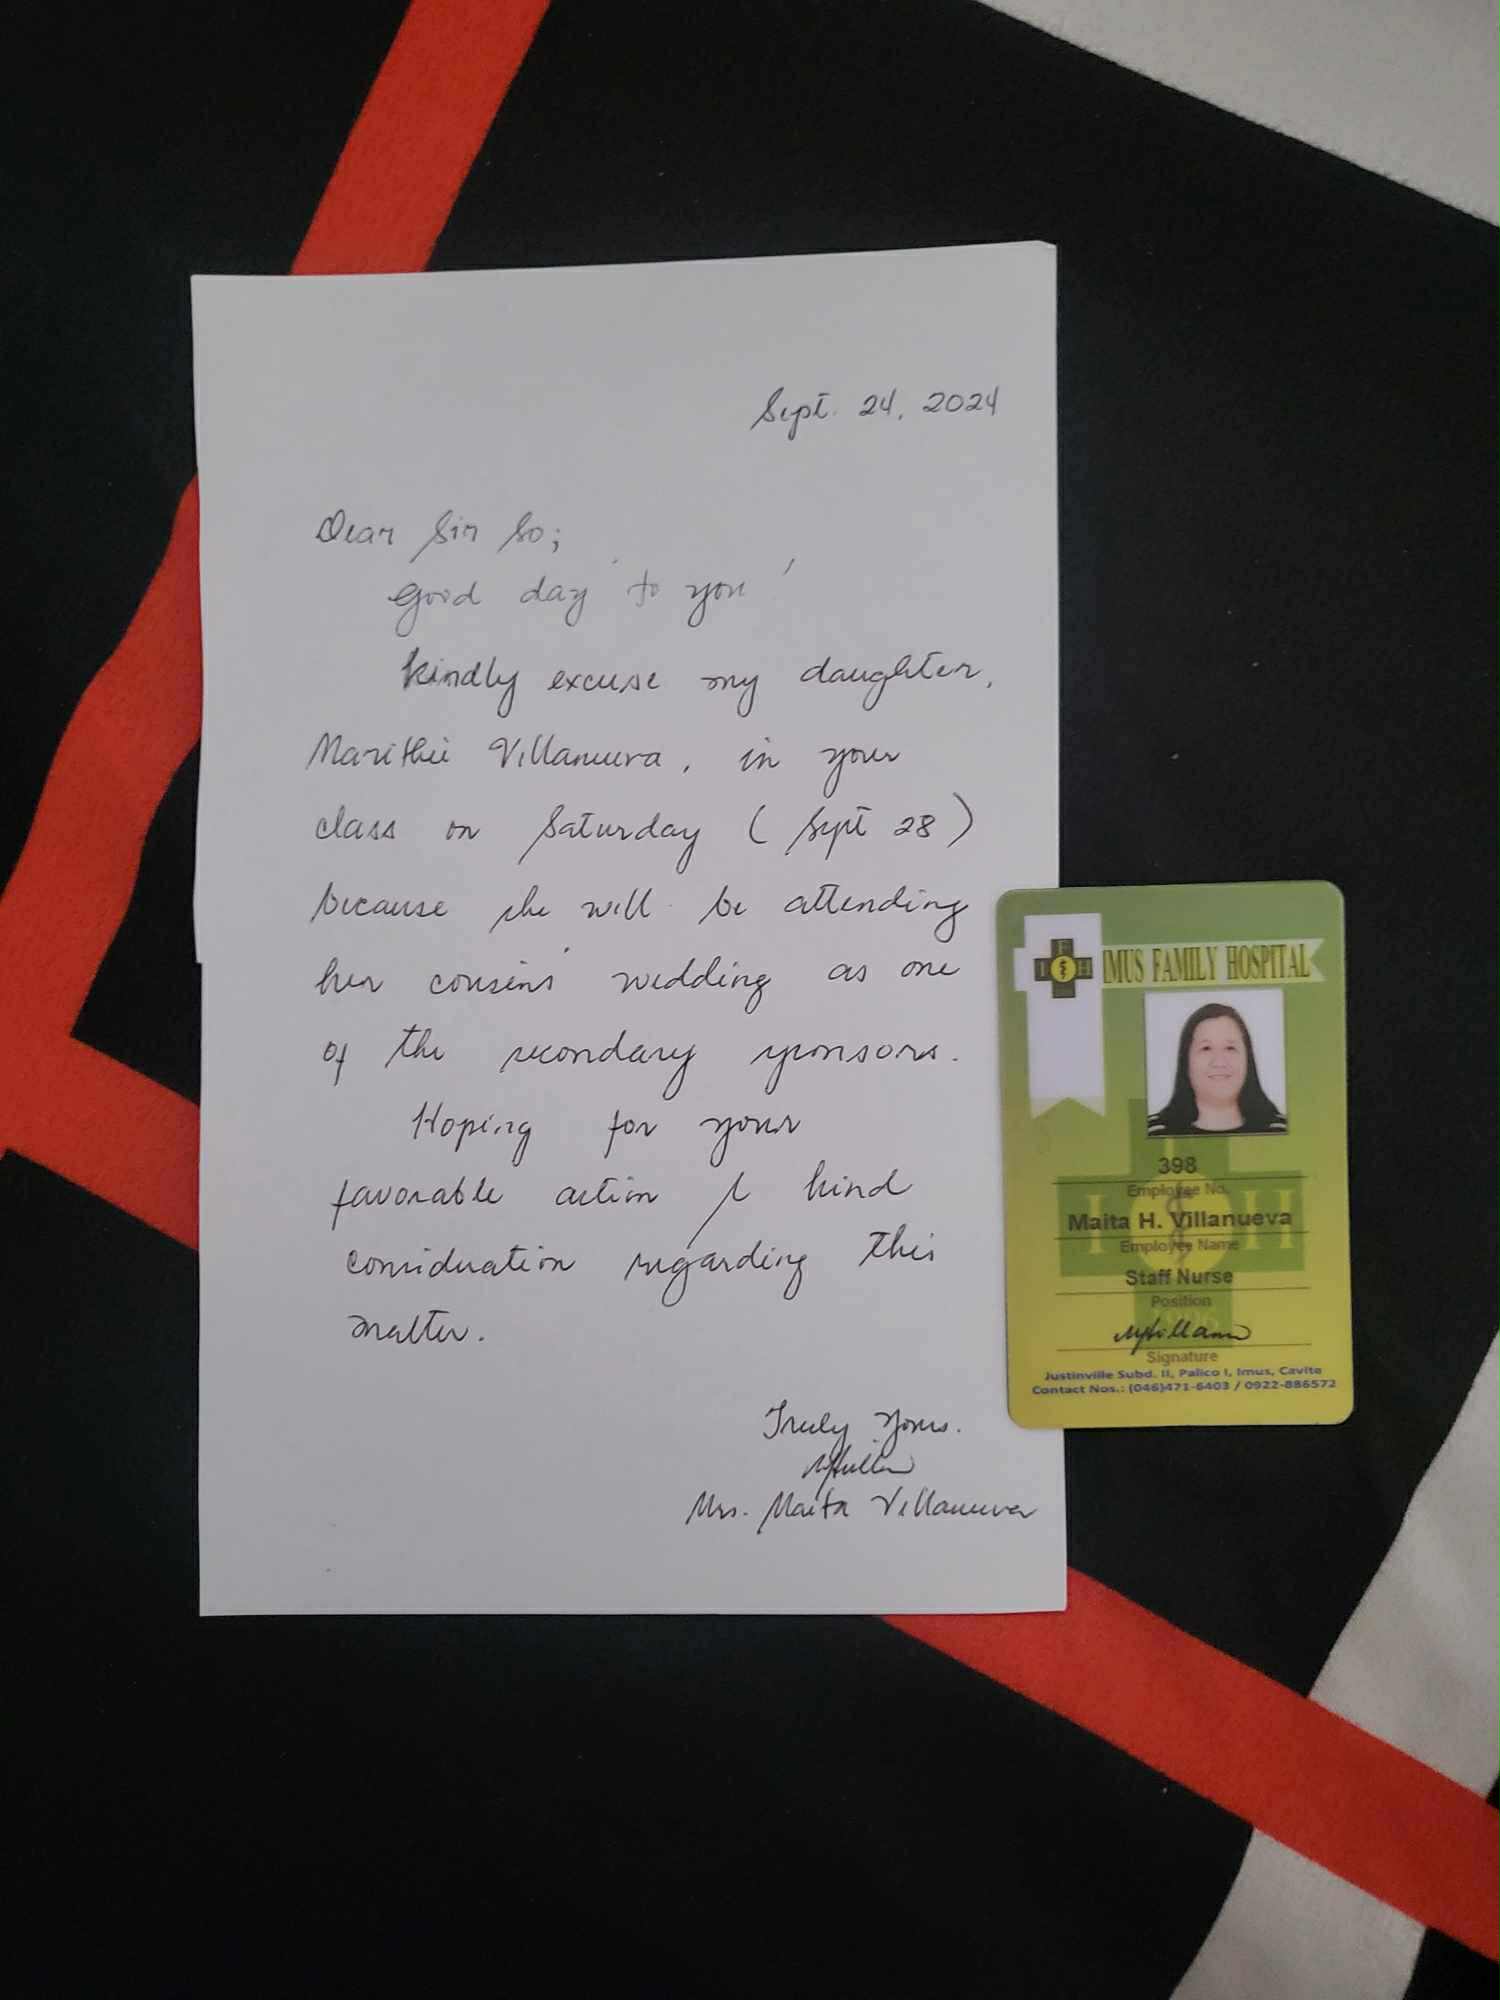 Sept. 24, 2024
Dear Sir So;
Good day to you!
Kindly excuse my daughter,
Marithie Villanueva, in your
class on Saturday (Sept 28)
because she will be attending
her cousins' wedding as one
of the secondary sponsors.
Hoping for your
favorable action & kind
consideration regarding this
matter.
Truly Yours.
Mrs. Maita Villanueva
IFH
IMUS FAMILY HOSPITAL
398
Employee No.
Maita H. Villanueva
Employee Name
Staff Nurse
Position
Signature
Justinville Subd. II, Palico I, Imus, Cavite
Contact Nos.: (046)471-6403 / 0922-886572